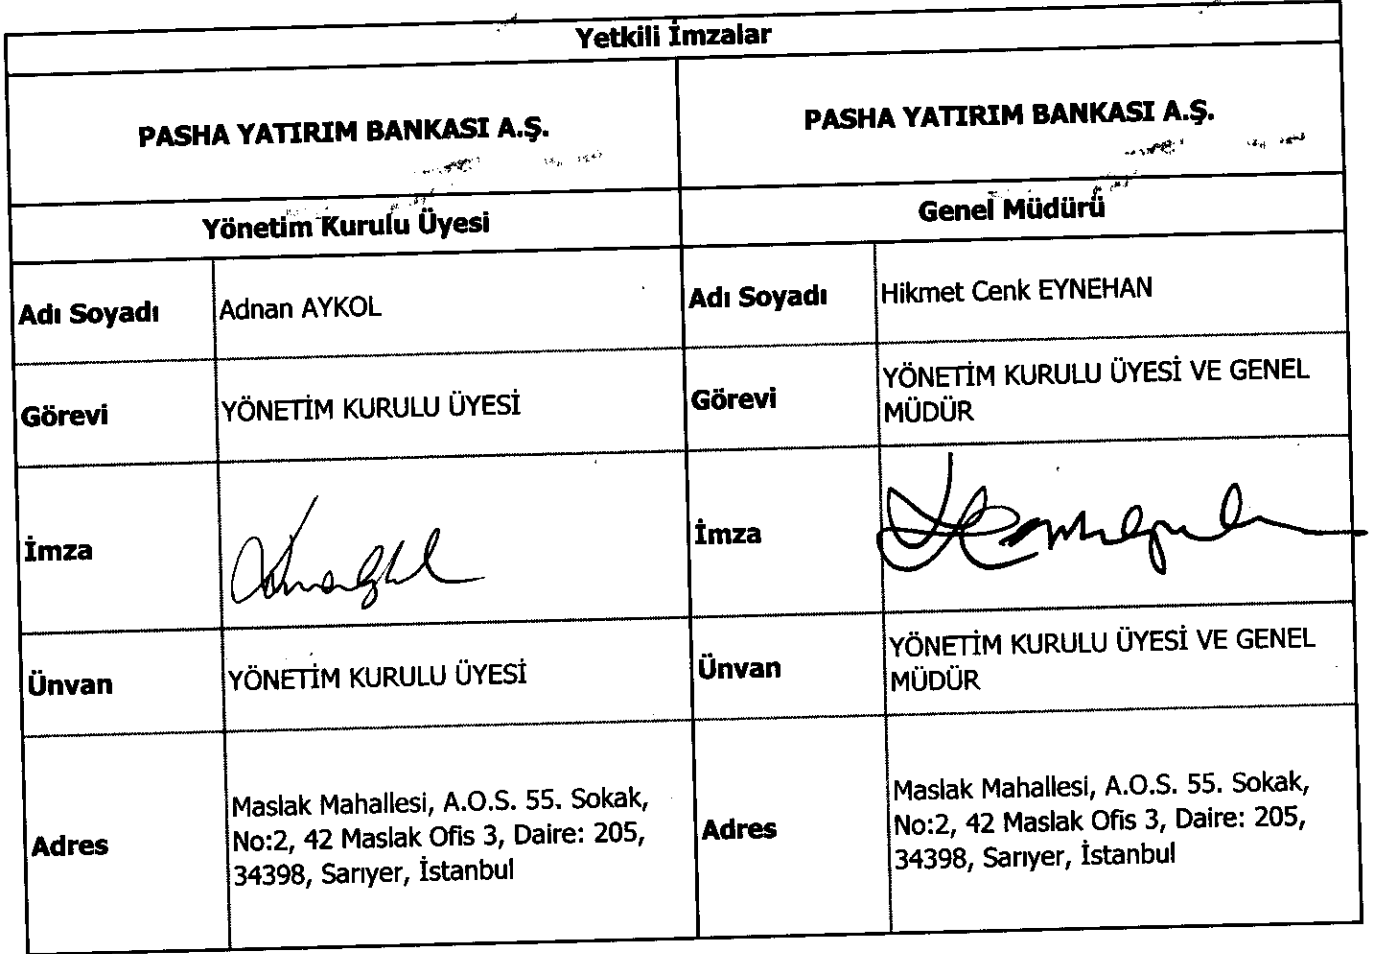 Yetkili İmzalar
PASHA YATIRIM BANKASI A.Ş.
PASHA YATIRIM BANKASI A.Ş.
Yönetim Kurulu Üyesi
Genel Müdürü
Adı Soyadı
Adnan AYKOL
Adı Soyadı
Hikmet Cenk EYNEHAN
Görevi
YÖNETİM KURULU ÜYESİ
Görevi
YÖNETİM KURULU ÜYESİ VE GENEL
MÜDÜR
İmza
İmza
Ünvan
YÖNETİM KURULU ÜYESİ
Ünvan
YÖNETİM KURULU ÜYESİ VE GENEL
MÜDÜR
Adres
Maslak Mahallesi, A.O.S. 55. Sokak,
No:2, 42 Maslak Ofis 3, Daire: 205,
34398, Sarıyer, İstanbul
Adres
Maslak Mahallesi, A.O.S. 55. Sokak,
No:2, 42 Maslak Ofis 3, Daire: 205,
34398, Sarıyer, İstanbul